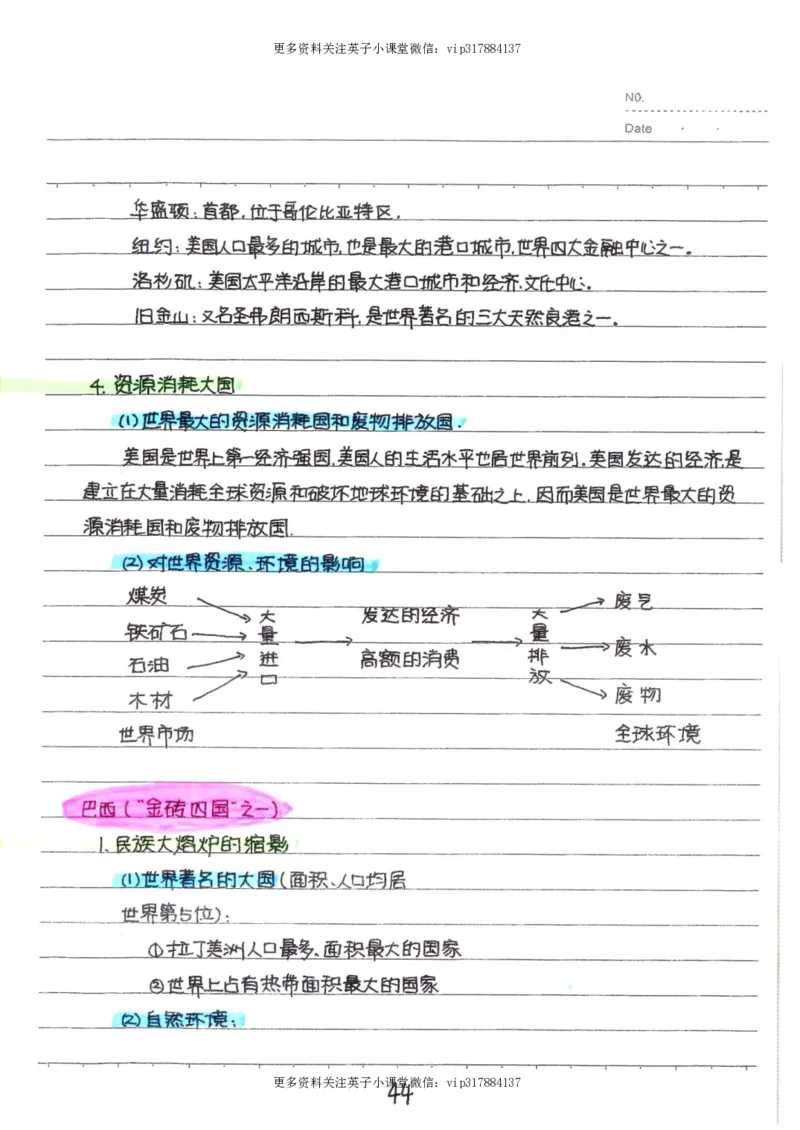 更多资料关注英子小课堂微信：vip317884137
NO.
Date
华盛顿：首都，位于哥伦比亚特区。
纽约：美国人口最多的城市，也是最大的港口城市，世界四大金融中心之一。
洛杉矶：美国太平洋沿岸的最大港口城市和经济、文化中心。
旧金山：又名圣弗朗西斯科，是世界著名的三大天然良港之一。
4. 资源消耗大国
(1)世界最大的资源消耗国和废物排放国。
美国是世界上第一经济强国，美国人的生活水平也居世界前列。美国发达的经济，是
建立在大量消耗全球资源和破坏地球环境的基础之上，因而美国是世界最大的资
源消耗国和废物排放国。
(2)对世界资源、环境的影响
煤炭
铁矿石
石油
木材
世界市场
大量进口
发达的经济
高额的消费
大量排放
废气
废水
废物
全球环境
巴西（“金砖四国”之一）
1. 民族大熔炉的缩影
(1)世界著名的大国（面积、人口均居
世界第5位）：
①拉丁美洲人口最多、面积最大的国家
②世界上占有热带面积最大的国家
(2)自然环境：
更多资料关注英子小课堂微信：vip317884137
44